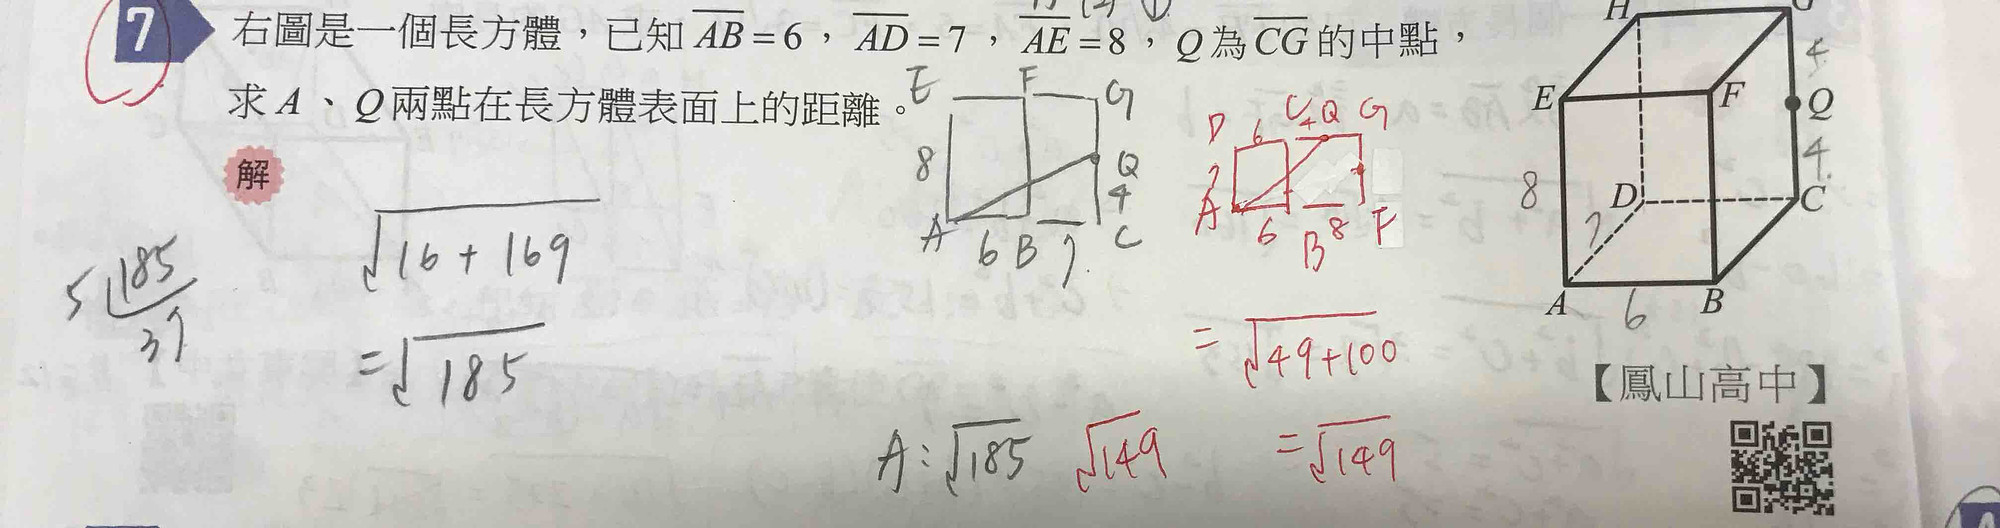 7 右圖是一個長方體，已知 AB = 6，AD = 7，AE = 8，Q 為 CG 的中點，
求 A、Q 兩點在長方體表面上的距離。
解
√16 + 169
= √185
5 185
37
E F G
8 Q
4
A 6 B 7 C
D 6 C 4 Q G
7
A 6 B 8 F
= √49+100
= √149
A : √185 √149
H G
E F Q
4
8 D C
7
A 6 B
【鳳山高中】